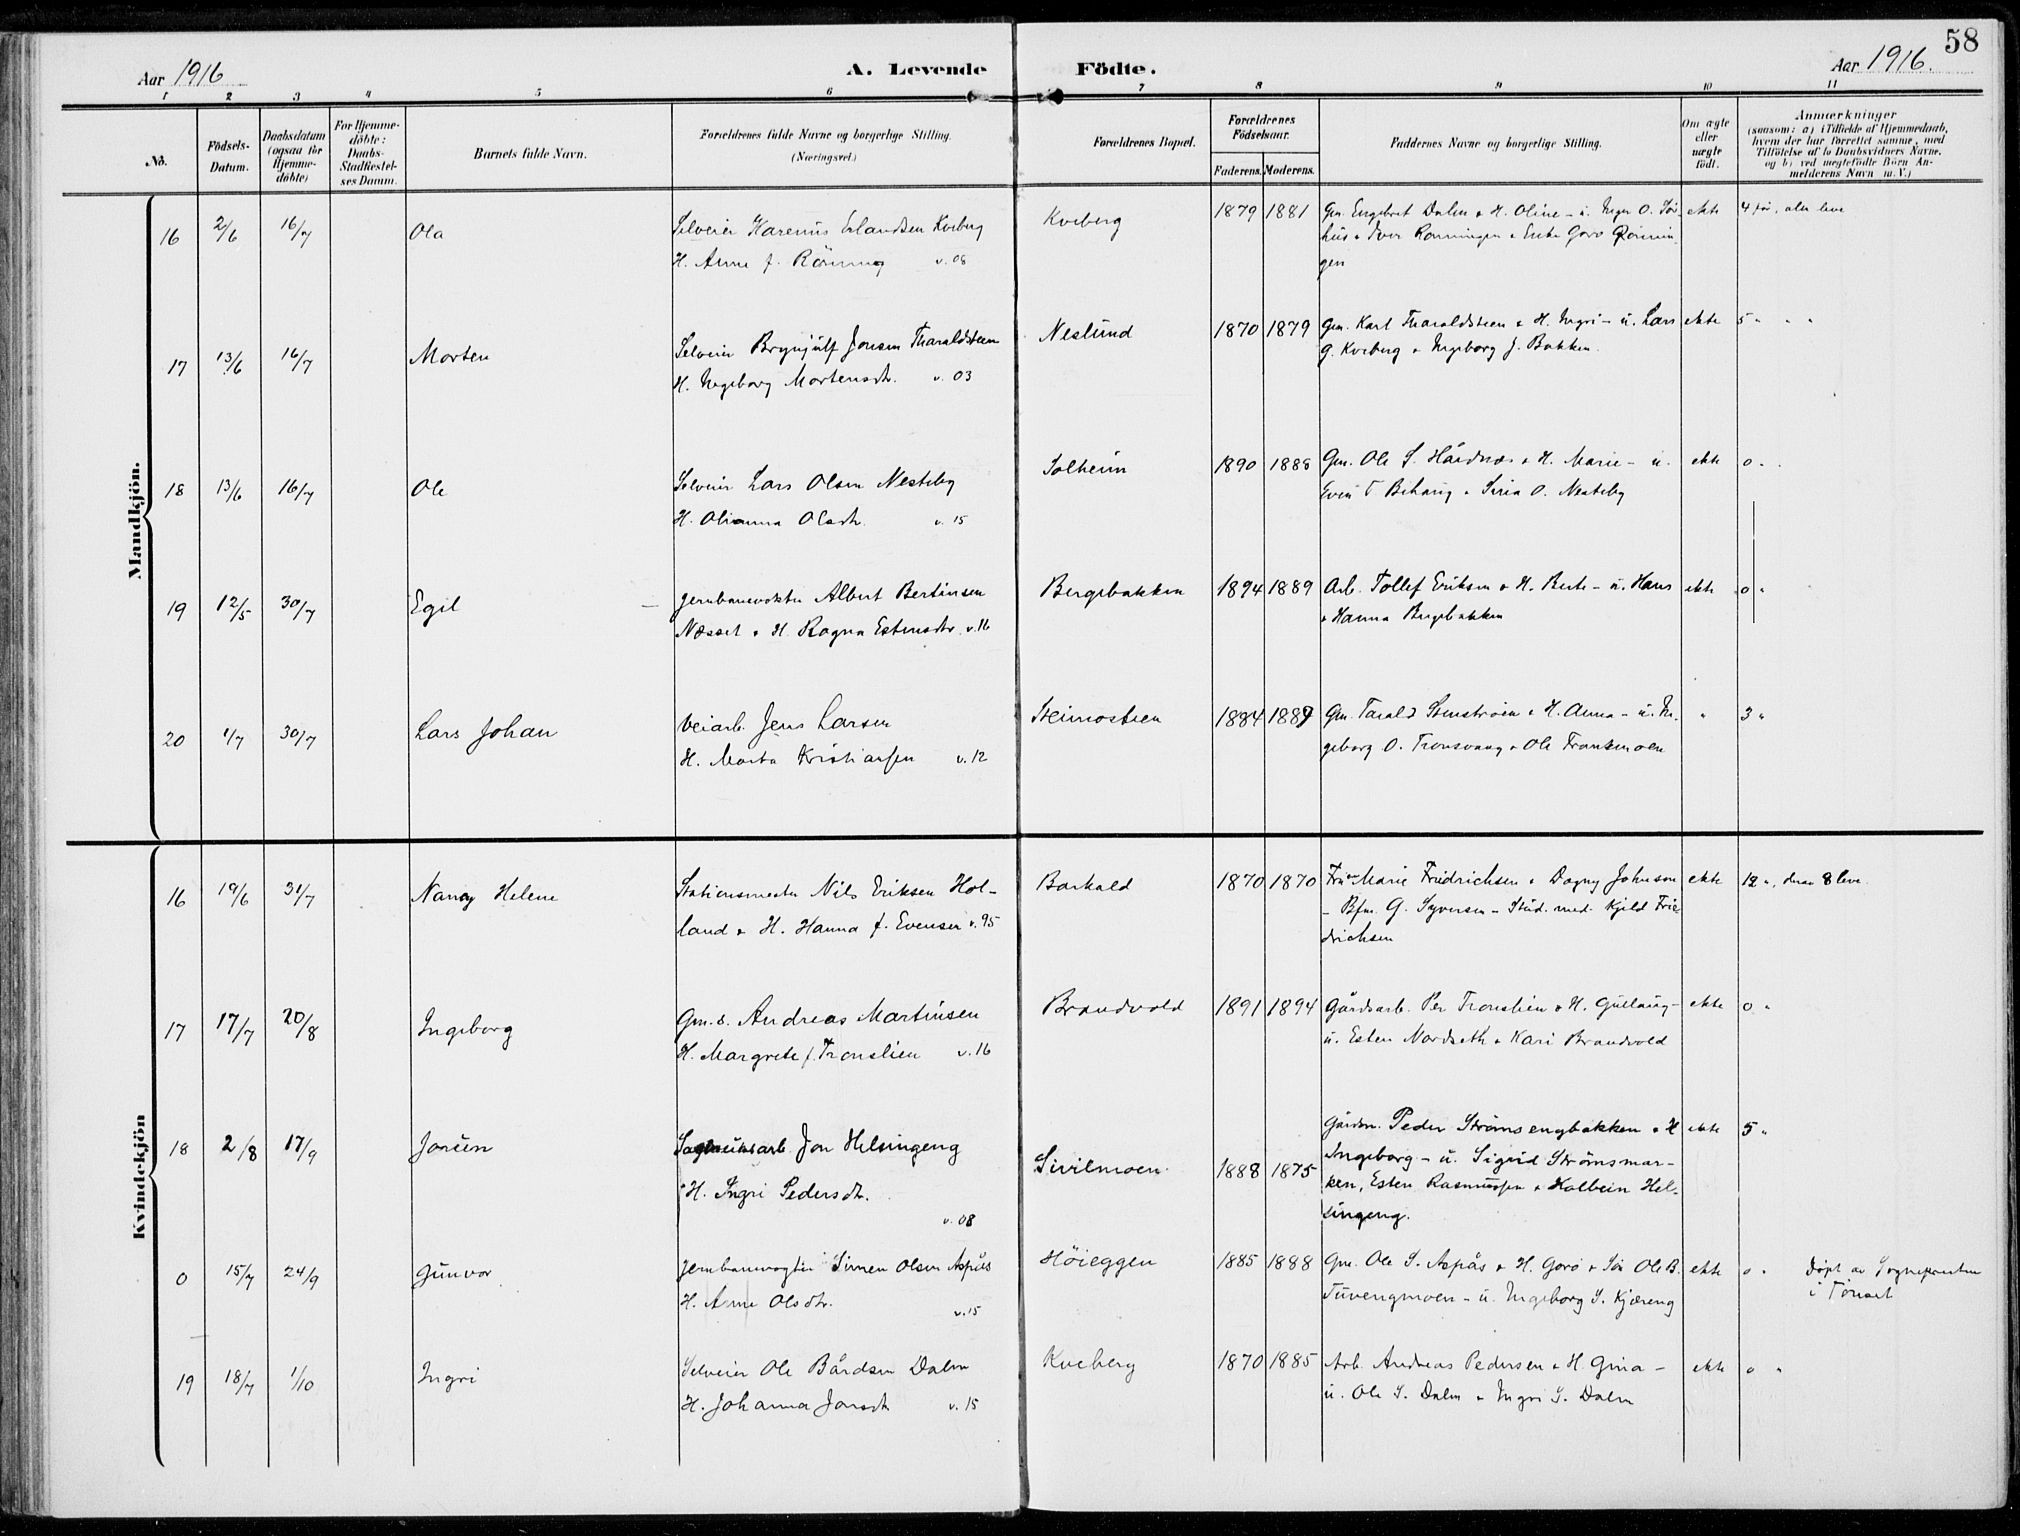 58
Aar 1916
A. Levende
Födte.
Aar 1916.
1 2 3 4 5 6 7 8 9 10 11
No.
Födsels-
Datum.
Daabsdatum
(ogsaa for
Hjemme-
döbte)
For Hjemme-
döbte:
Daabs-
Stadfestel-
ses Datum.
Barnets fulde Navn.
Forældrenes fulde Navne og borgerlige Stilling.
(Næringsvei.)
Forældrenes Bopæl.
Forældrenes
Födselsaar.
Faderens. Moderens.
Faddernes Navne og borgerlige Stilling.
Om ægte
eller
uægte
födt.
Anmærkninger
(saasom: a) i Tilfælde af Hjemmedaab,
hvem der har forrettet samme, med
Tilföielse af to Daabsvidners Navne.
og b) ved uegtefödte Börn An-
melderens Navn m. V.)
Mandkjön.
16 2/6 16/7 Ola
Selveier Harenius Erlandsen Kveberg
H. Anne f. Rönning v. 08
Kveberg 1879 1881
Gm. Engebret Dalen & H. Oline - u. Inger O. Sör-
hus & Iver Ronningen & Enke Goro Rönnin-
gen
ekte 4 för, alle leve
17 13/6 16/7 Morten
Selveier Brynjulf Jonsen Tharaldsteen
H. Ingeborg Mortensdtr. v. 03
Neslund 1870 1879
Gm. Karl Tharaldsteen & H. Ingri - u. Lars
G. Kveberg & Ingeborg J. Bakken.
ekte 5 " " "
18 13/6 16/7 Ole
Selveier Lars Olsen Nesteby
H. Olianna Olsdtr. v. 15
Solheim 1890 1888
Gm. Ole S. Hårdnes & H. Marie - u.
Even T. & O. Nesteby
ekte 0 "
19 12/5 30/7 Egil
Jernbanevokter Albert Bertinsen
Næsset & H. Ragna Estensdtr. v. 16
Bergebakken 1894 1889
Arb. Tollef Eriksen & H. Berte - u. Hans
& Hanna Bergebakken
ekte 0 "
20 1/7 30/7 Lars Johan
Veiarb. Jens Larsen
H. Marta Kristiansen v. 12
Steimosteen 1884 1889
Gm. Tarald Stenströen & H. Anna - u. In-
geborg O. Tronsvang & Ole
" 3 "
Kvindekjön
16 19/6 31/7 Nancy Helene
Stationsmester Nils Eriksen Hol-
land & H. Hanna f. Evensen v. 95
Barkald 1870 1870
Frue Marie Fridrichsen & Dagny Johnson
- Bfm. G. Syversen - Stud. med. Kjeld Frie-
drichsen
ekte 12 ", derav 8 leve.
17 17/7 20/8 Ingeborg
Gm.s. Andreas Martinsen
H. Margrete f. Tronslien v. 16
Brandvold 1891 1894
Gårdsarb. Per Tronslien & H. Gullaug -
u. Esten Nordseth & Kari Brandvold
ekte 0 "
18 2/8 17/9 Jorun
Sagbruksarb. Jon Helsingeng
& H. Ingri Pedersdtr.
v. 08
Sivilmoen 1888 1875
Gårdm. Peder Strömsengbakken & H
Ingeborg - u. Sigrid Strömsmar-
ken, Esten Rasmussen & Halbein Hel-
singeng.
ekte 5 "
0 15/7 24/9 Gunvor
Jernbanevogter Simen Olsen Aspås
H. Anne Olsdtr. v. 15
Höieggen 1885 1888
Gm. Ole S. Aspås & H. Goro & Ole B.
Tuvengmoen - u. Ingeborg S. Kjæreng
ekte 0 "
Döpt av Sognepresten
i Tönset
19 18/7 1/10 Ingri
Selveier Ole Bårdsen Dalen
H. Johanna Jonsdtr v. 15
Kveberg 1870 1885
Arb. Andreas Pedersen & H. Gina -
u. Ole S. Dalen & Ingri S. Dalen
ekte 0 "